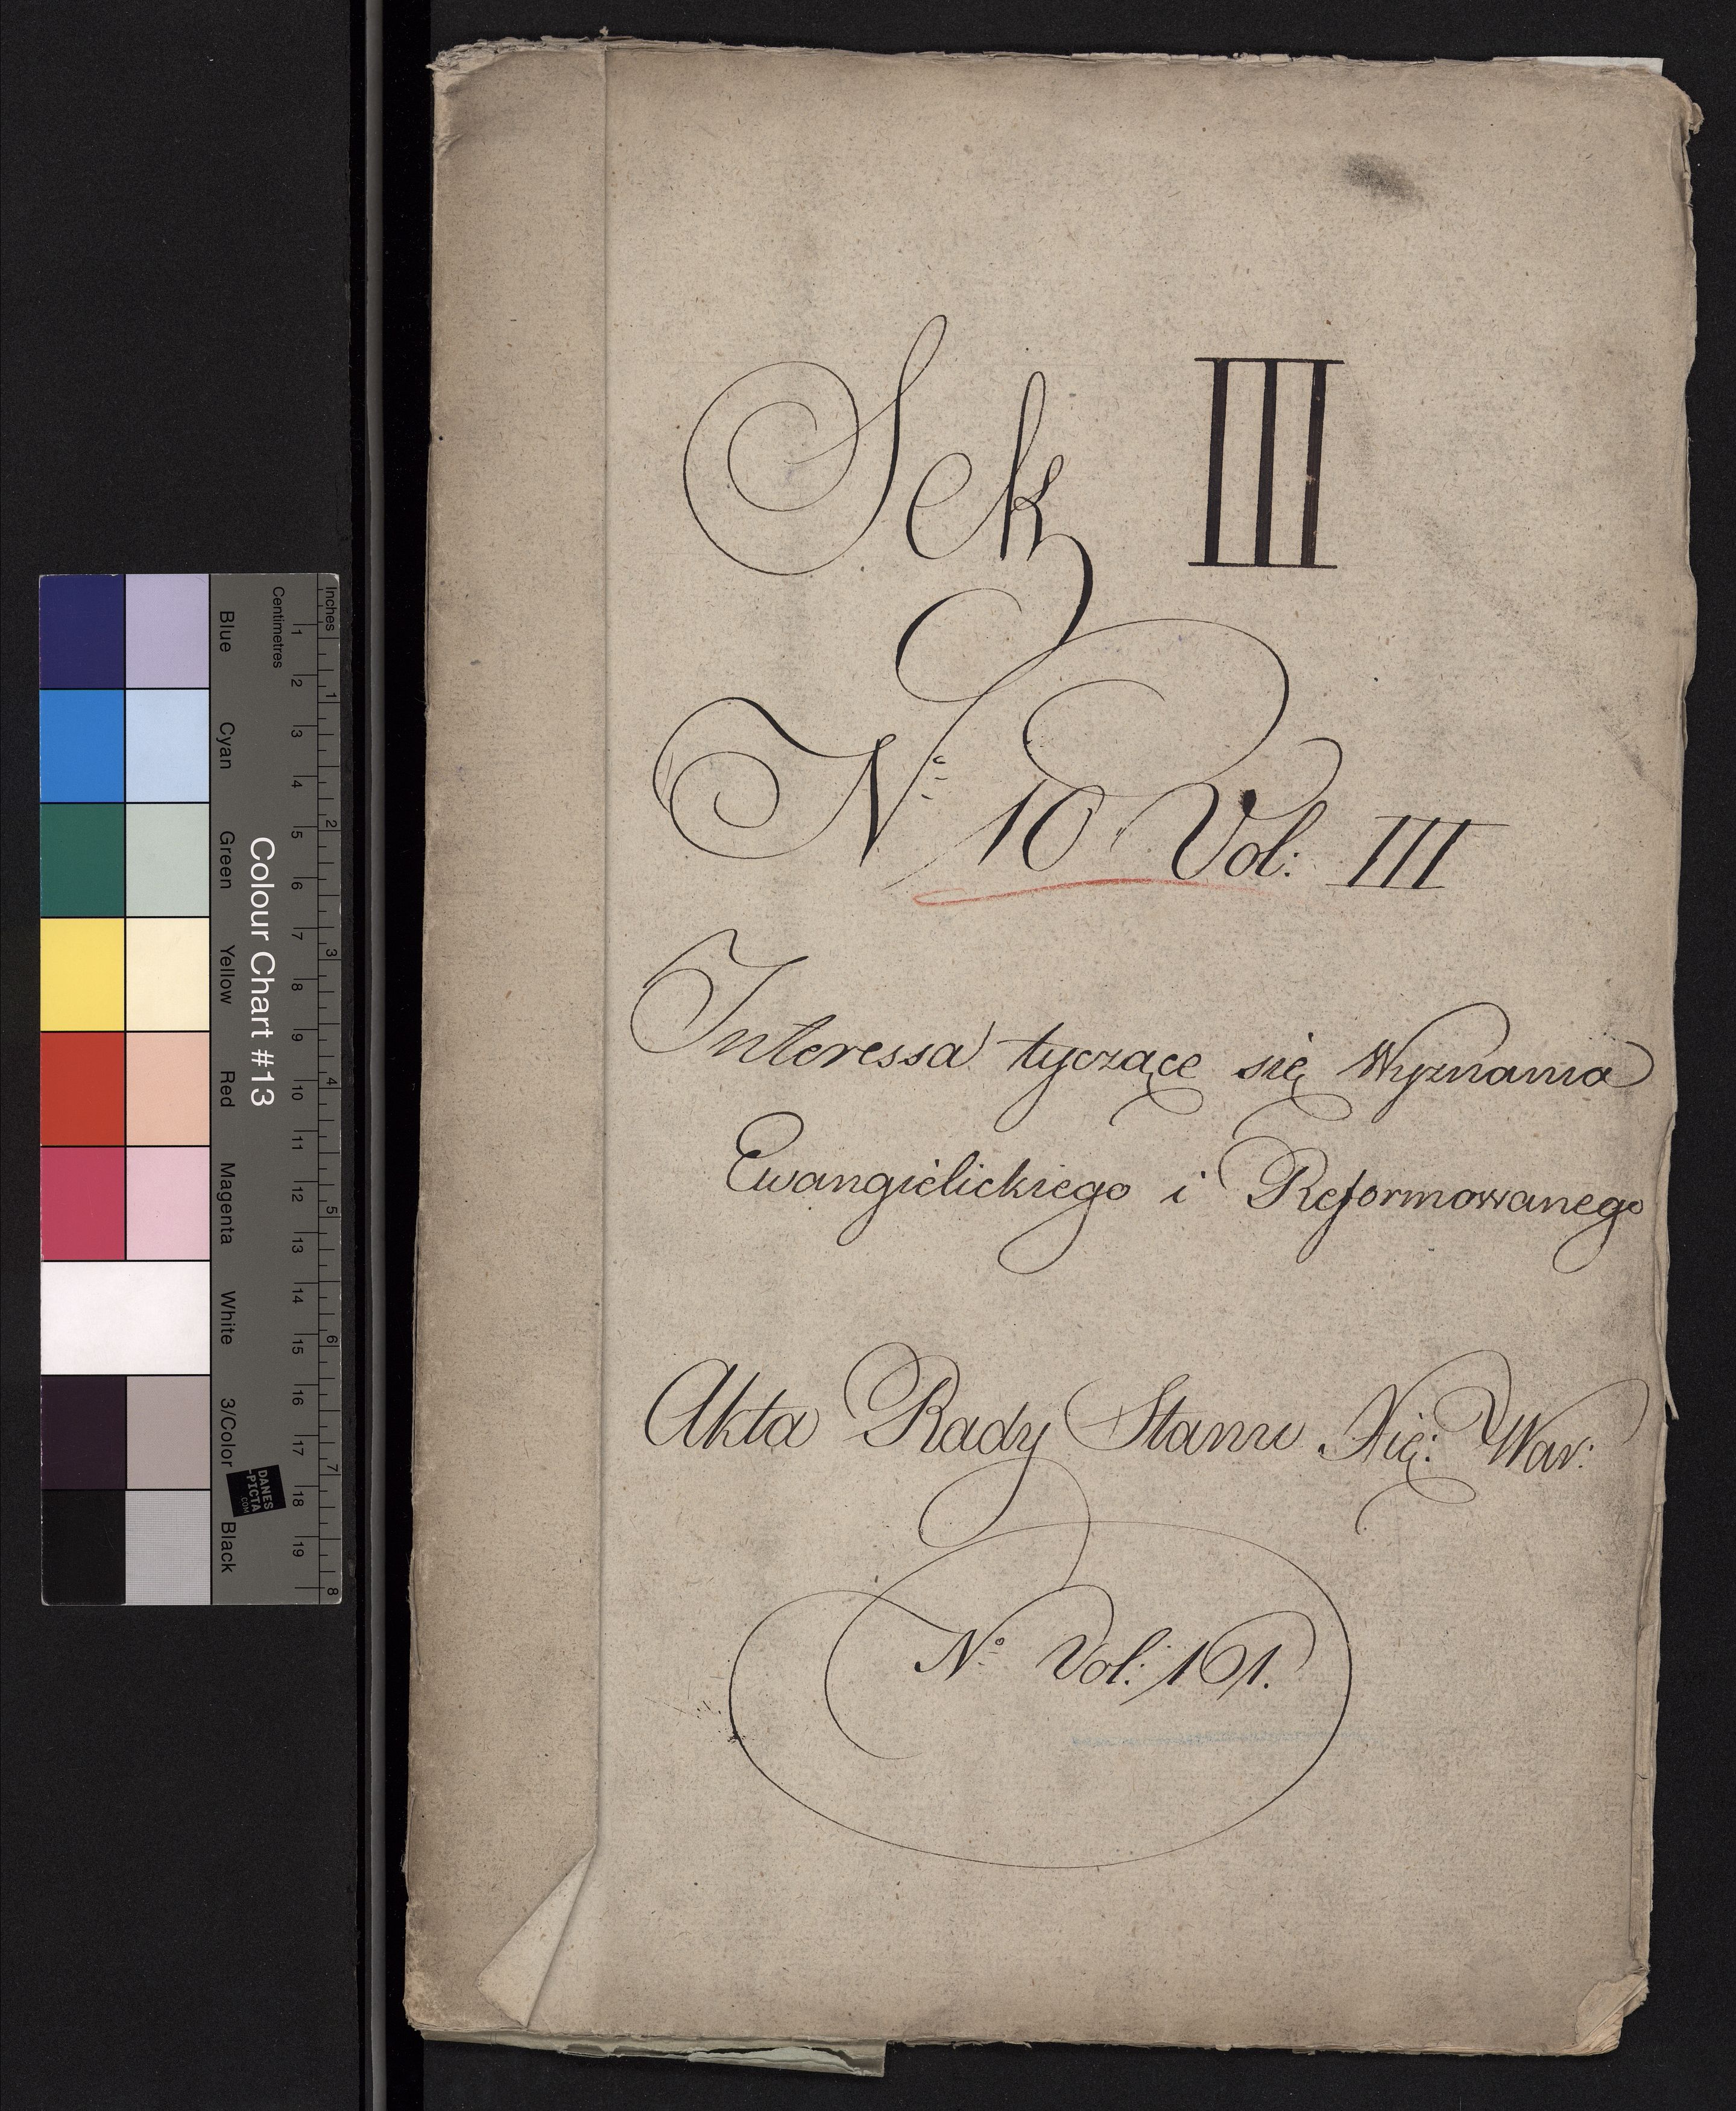 Sek III
No 10 Vol: III
Interessa tyczące się Wyznania
Ewangielickiego i Reformowanego
Akta Rady Stanu Xię: War:
No Vol: 161.
Inches
Centimetres
1 2 3 4 5 6 7 8 9 10 11 12 13 14 15 16 17 18 19
1 2 3 4 5 6 7 8
Colour Chart #13
Blue Cyan Green Yellow Red Magenta White 3/Color Black
DANES
-PICTA
.COM